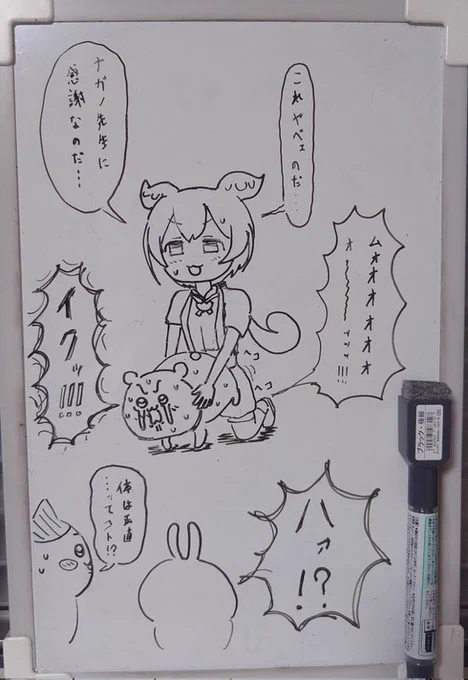 これやベェのだ…
ナガノ先生に
感謝なのだ…
ムォオオオオオオ
イクッ!!!!
ヘコ
ヘコ
体は正直
…ってコト!?
ハァ!?
ブラック・極細